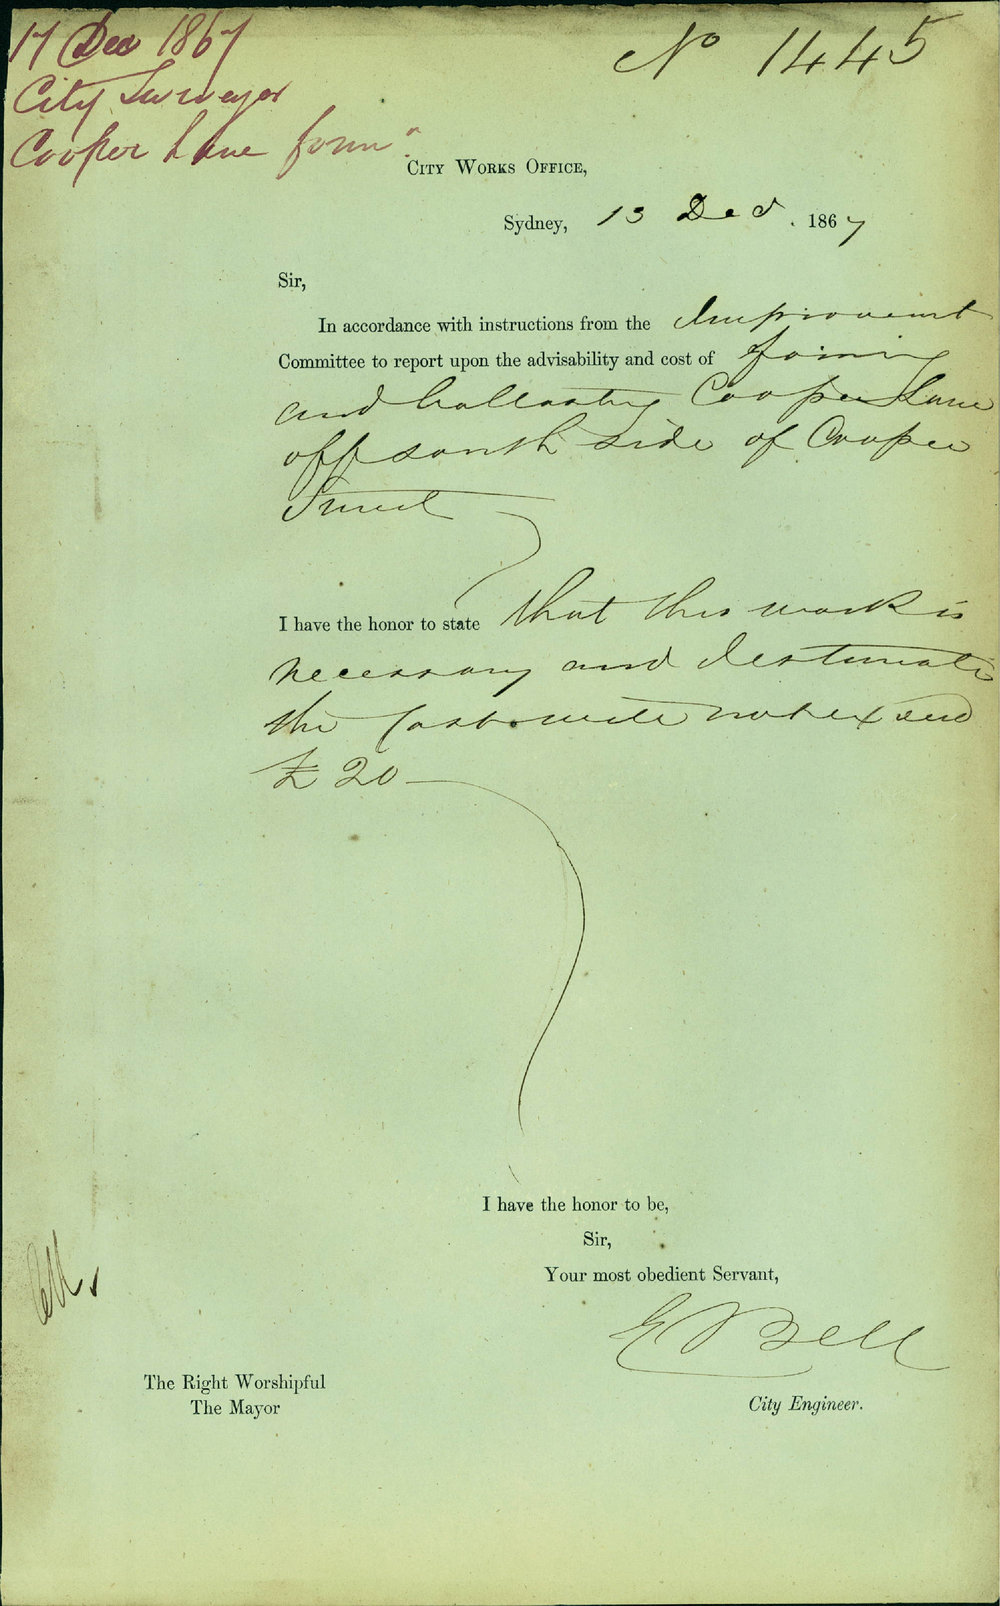 17 Dec 1867
City Surveyor
Cooper Lane form.n
No 1445
City Works Office,
Sydney, 13 Dec. 1867
Sir,
In accordance with instructions from the Improvement
Committee to report upon the advisability and cost of forming
and ballasting Cooper Lane
off south side of Cooper
Street
I have the honor to state that this work is
necessary and I estimate
the cost will not exceed
£20
I have the honor to be,
Sir,
Your most obedient Servant,
E Bell
The Right Worshipful
The Mayor
City Engineer.